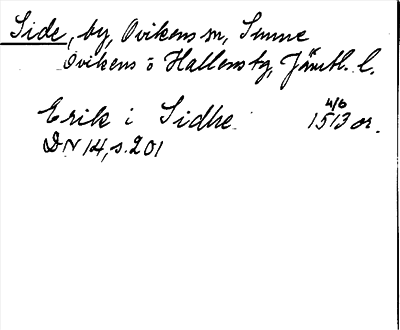 Side, by, Ovikens sn, Sunne
Ovikens o Hallens tg, Jämtl. l.
4/6
Erik i Sidhe 1513 or.
DN 14, s. 201